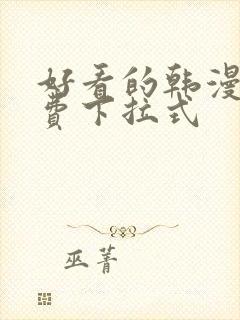 好看的韩漫
费下拉式
巫菁